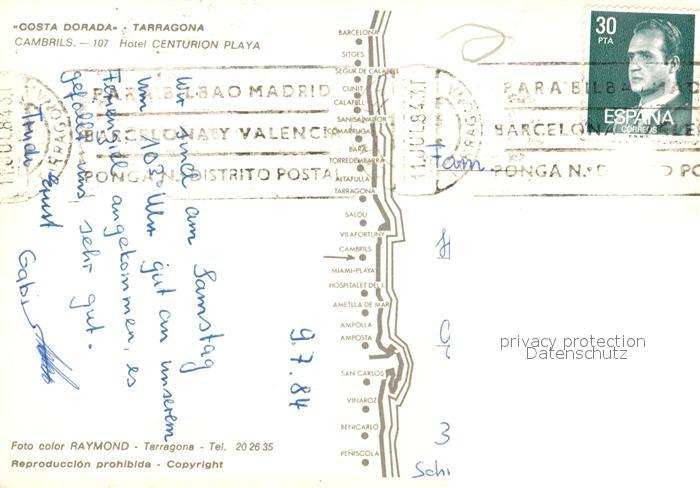 "COSTA DORADA" - TARRAGONA
CAMBRILS. — 107 Hotel CENTURION PLAYA
30
PTA
ESPAÑA
CORREOS
PARA BILBAO MADRID
BARCELONA Y VALENCIA
PONGA N.º DISTRITO POSTAL
PARA BILBAO MAD
BARCELONA
PONGA N.º D PO
BARCELONA
SITGES
SEGUR DE CALAFELL
CUNIT
CALAFELL
SANSALVADOR
COMARRUGA
BARA
TORREDEMBARRA
ALTAFULLA
TARRAGONA
SALOU
VILAFORTUNY
CAMBRILS
MIAMI-PLAYA
HOSPITALET DEL I.
AMETLLA DE MAR
AMPOLLA
AMPOSTA
SAN CARLOS
VINAROZ
BENICARLO
PEÑISCOLA
9.7.84
Wir sind am Samstag
um 10 Uhr gut an unserem
Ferienziel angekommen, es
gefällt uns sehr gut.
Trudi Ernst Gabi
Fam.
3
Schi
privacy protection
Datenschutz
Foto color RAYMOND - Tarragona - Tel. 20 26 35
Reproducción prohibida - Copyright